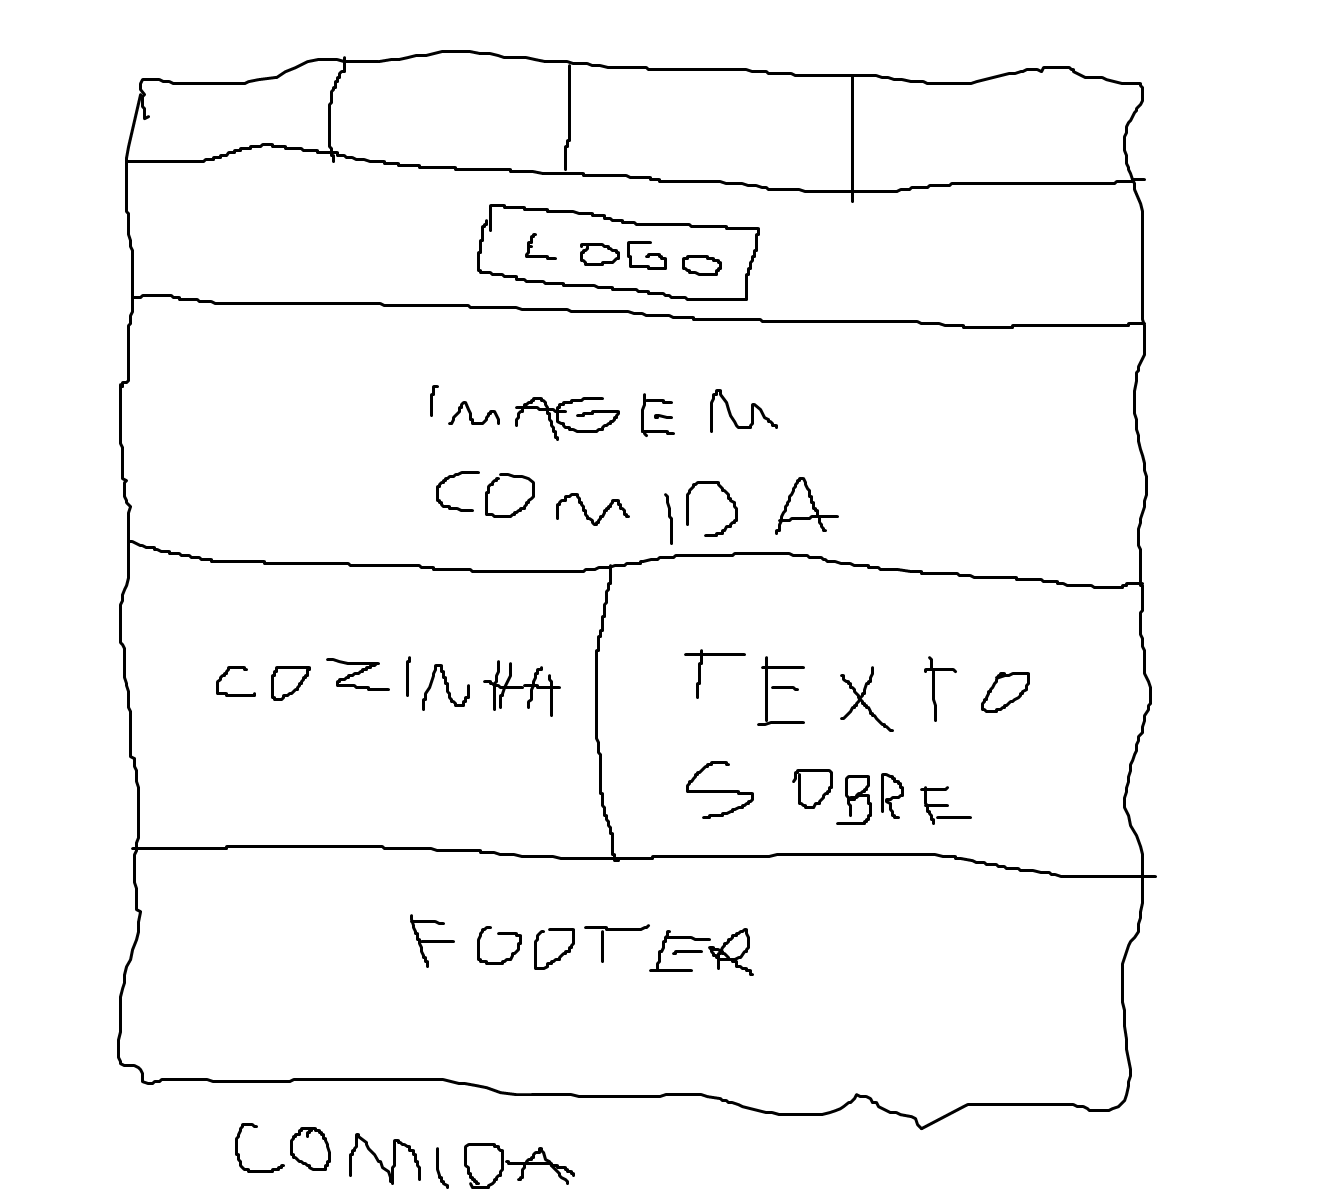 LOGO
IMAGEM
COMIDA
COZINHA
TEXTO
SOBRE
FOOTER
COMIDA